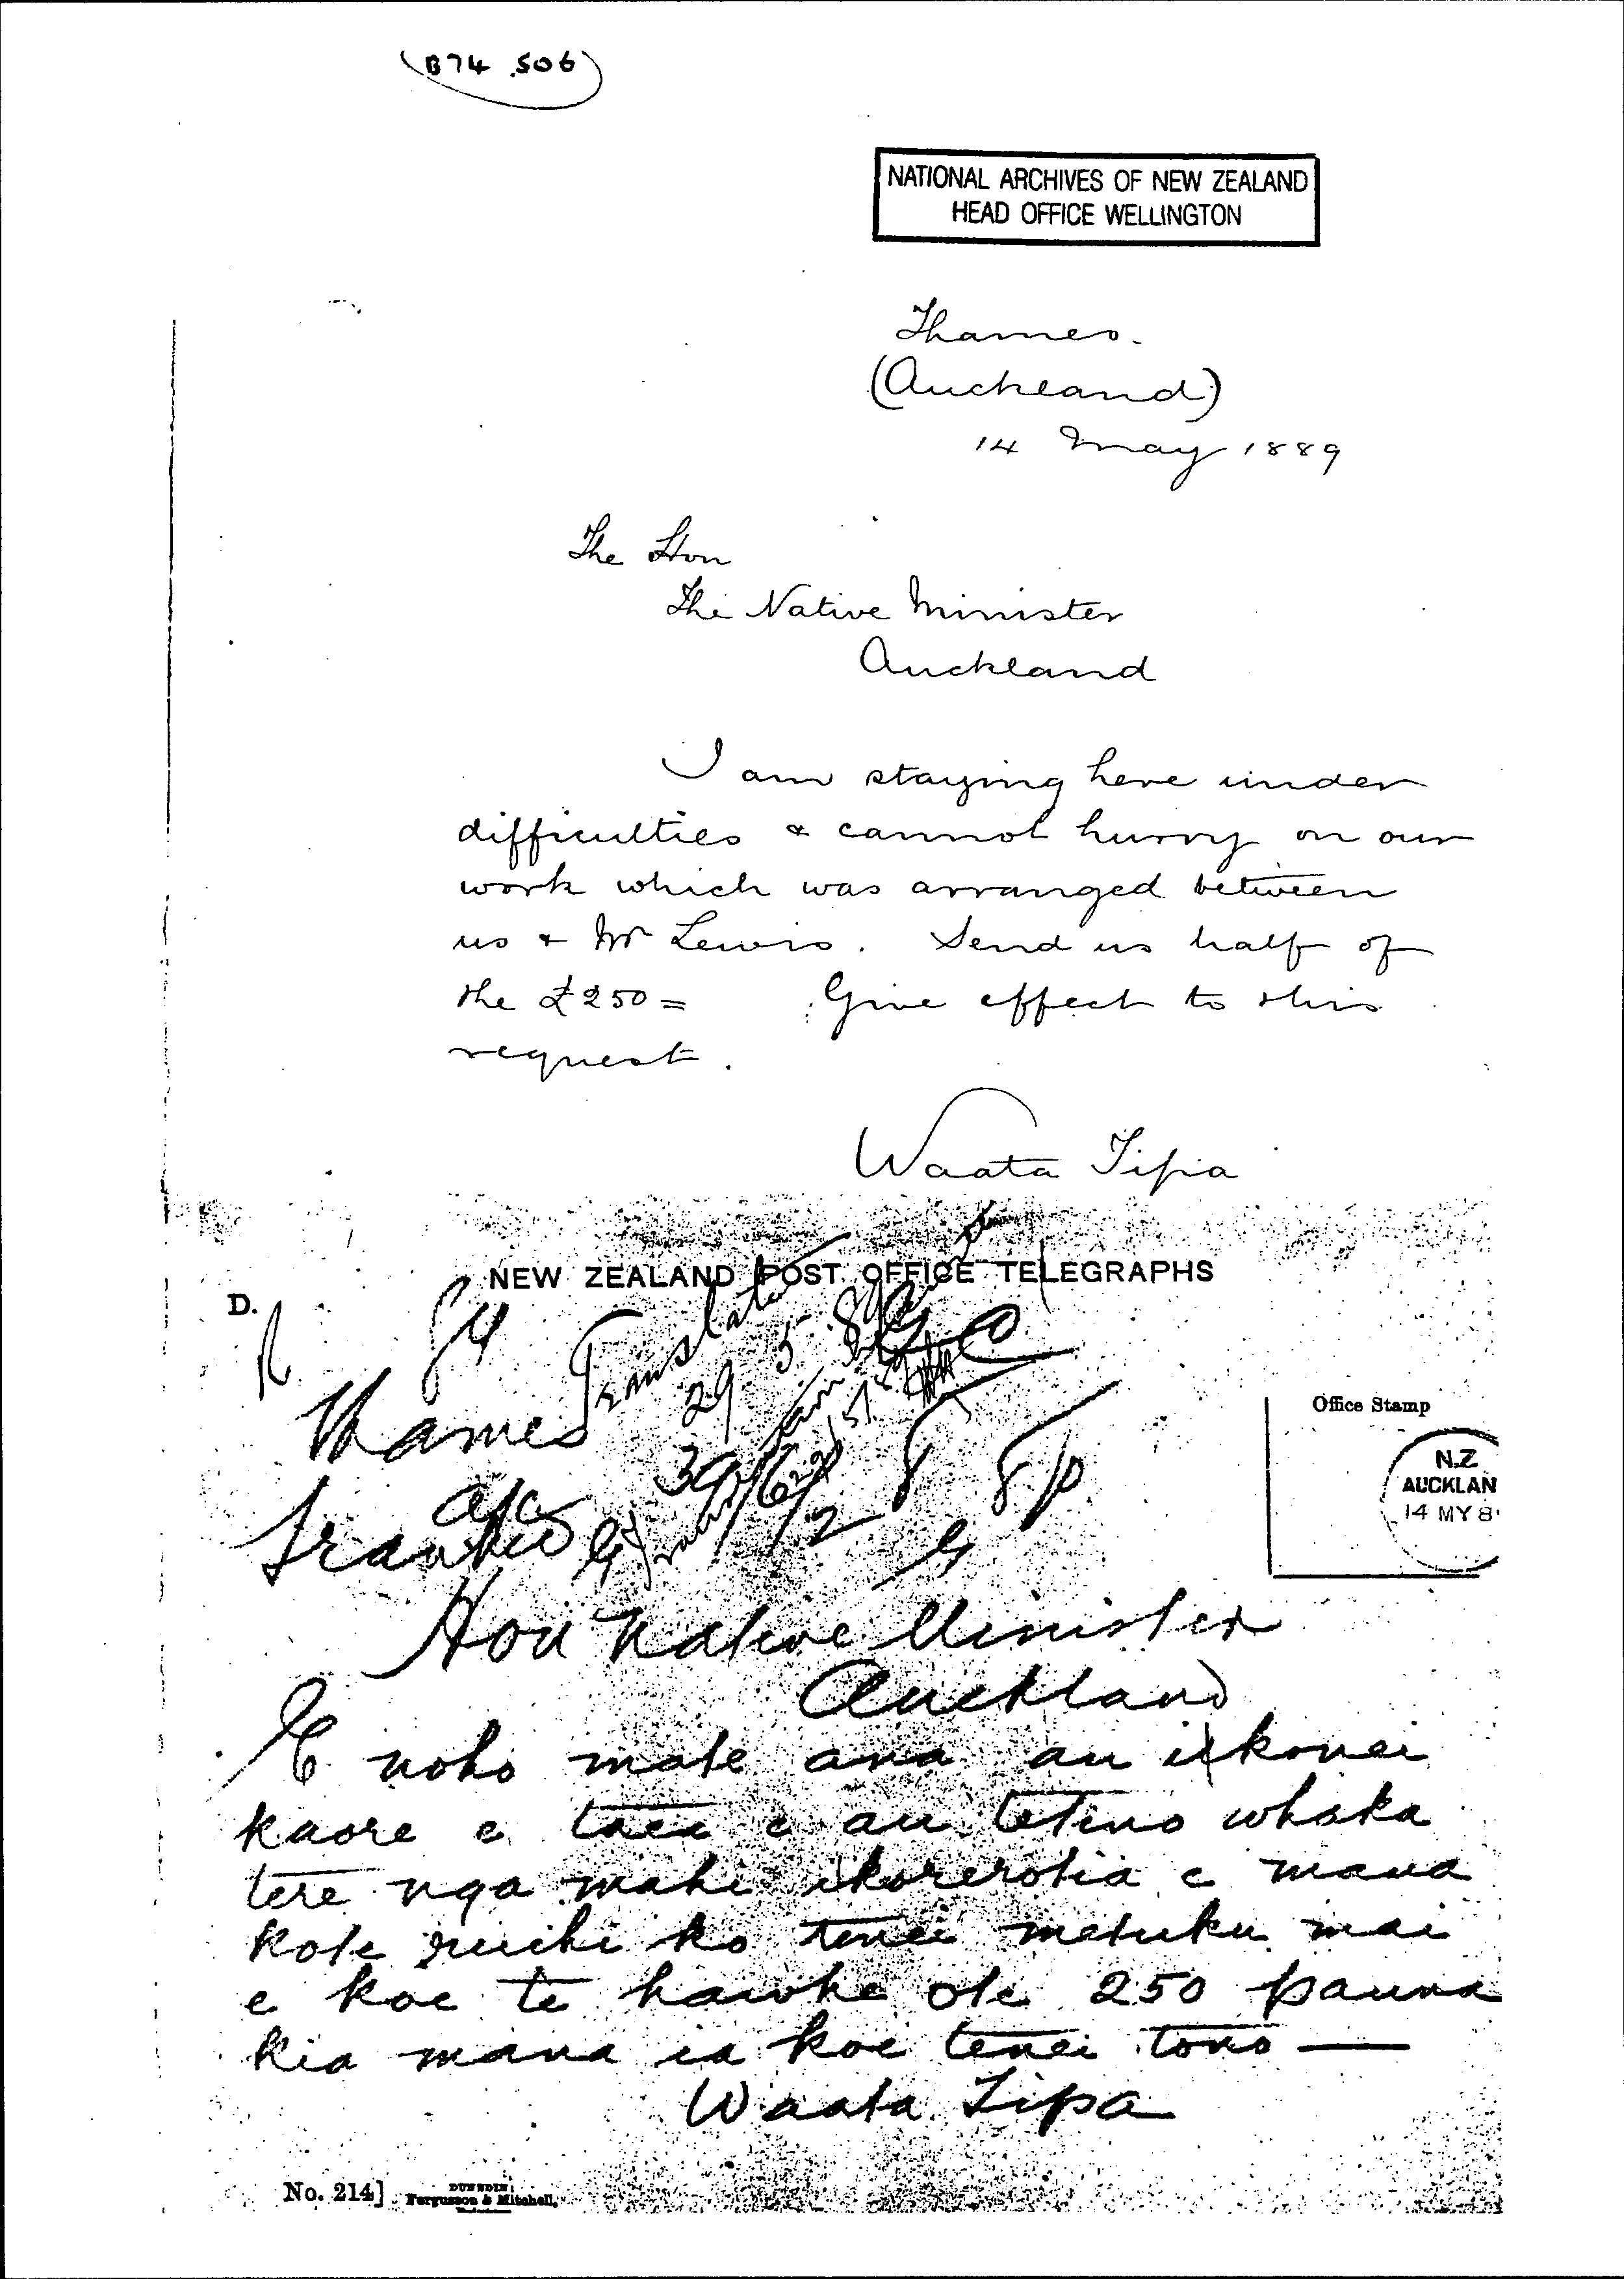 (B74 506)
NATIONAL ARCHIVES OF NEW ZEALAND
HEAD OFFICE WELLINGTON
Thames.
(Auckland)
14 May 1889
The Hon
The Native Minister
Auckland
I am staying here under
difficulties & cannot hurry on our
work which was arranged between
us & Mr Lewis. Send us half of
the £250= Give effect to this
request.
Waata Tipa
NEW ZEALAND POST OFFICE TELEGRAPHS
D.
Translated
29 5 89
Thames
Office Stamp
N.Z
AUCKLAN
14 MY 8
Hon Native Minister
Auckland
E noho mate ana au ikonei
kaore e taea e au tetino whaka
tere nga mahi ikorerotia e maua
kote ruihi ko tenei metuku mai
e koe te hawhe ote 250 pauna
kia mana ia koe tenei tono —
Waata Tipa
No. 214]
DUNEDIN:
Fergusson & Mitchell,